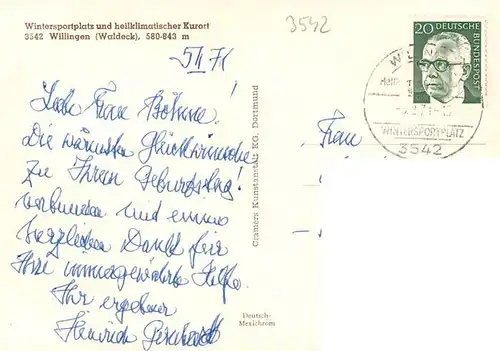 Wintersportplatz und heilklimatischer Kurort
3542 Willingen (Waldeck), 580-843 m
3542
5/II 71
Liebe Frau Böhme!
Die wärmsten Glückwünsche
zu Ihrem Geburtstag!
verbunden mit einem
herzlichen Dank für
Ihre immergewährte Hilfe.
Ihr ergebener
Heinrich
Cramers Kunstanstalt KG, Dortmund
Deutsch-
Mexichrom
20 DEUTSCHE
BUNDESPOST
WINTERSPORTPLATZ
3542
Frau